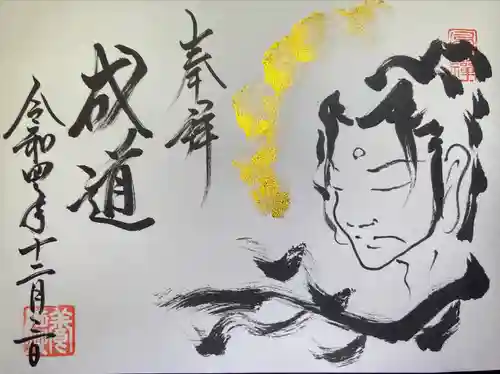 奉拝
成道
令和四年十二月三日